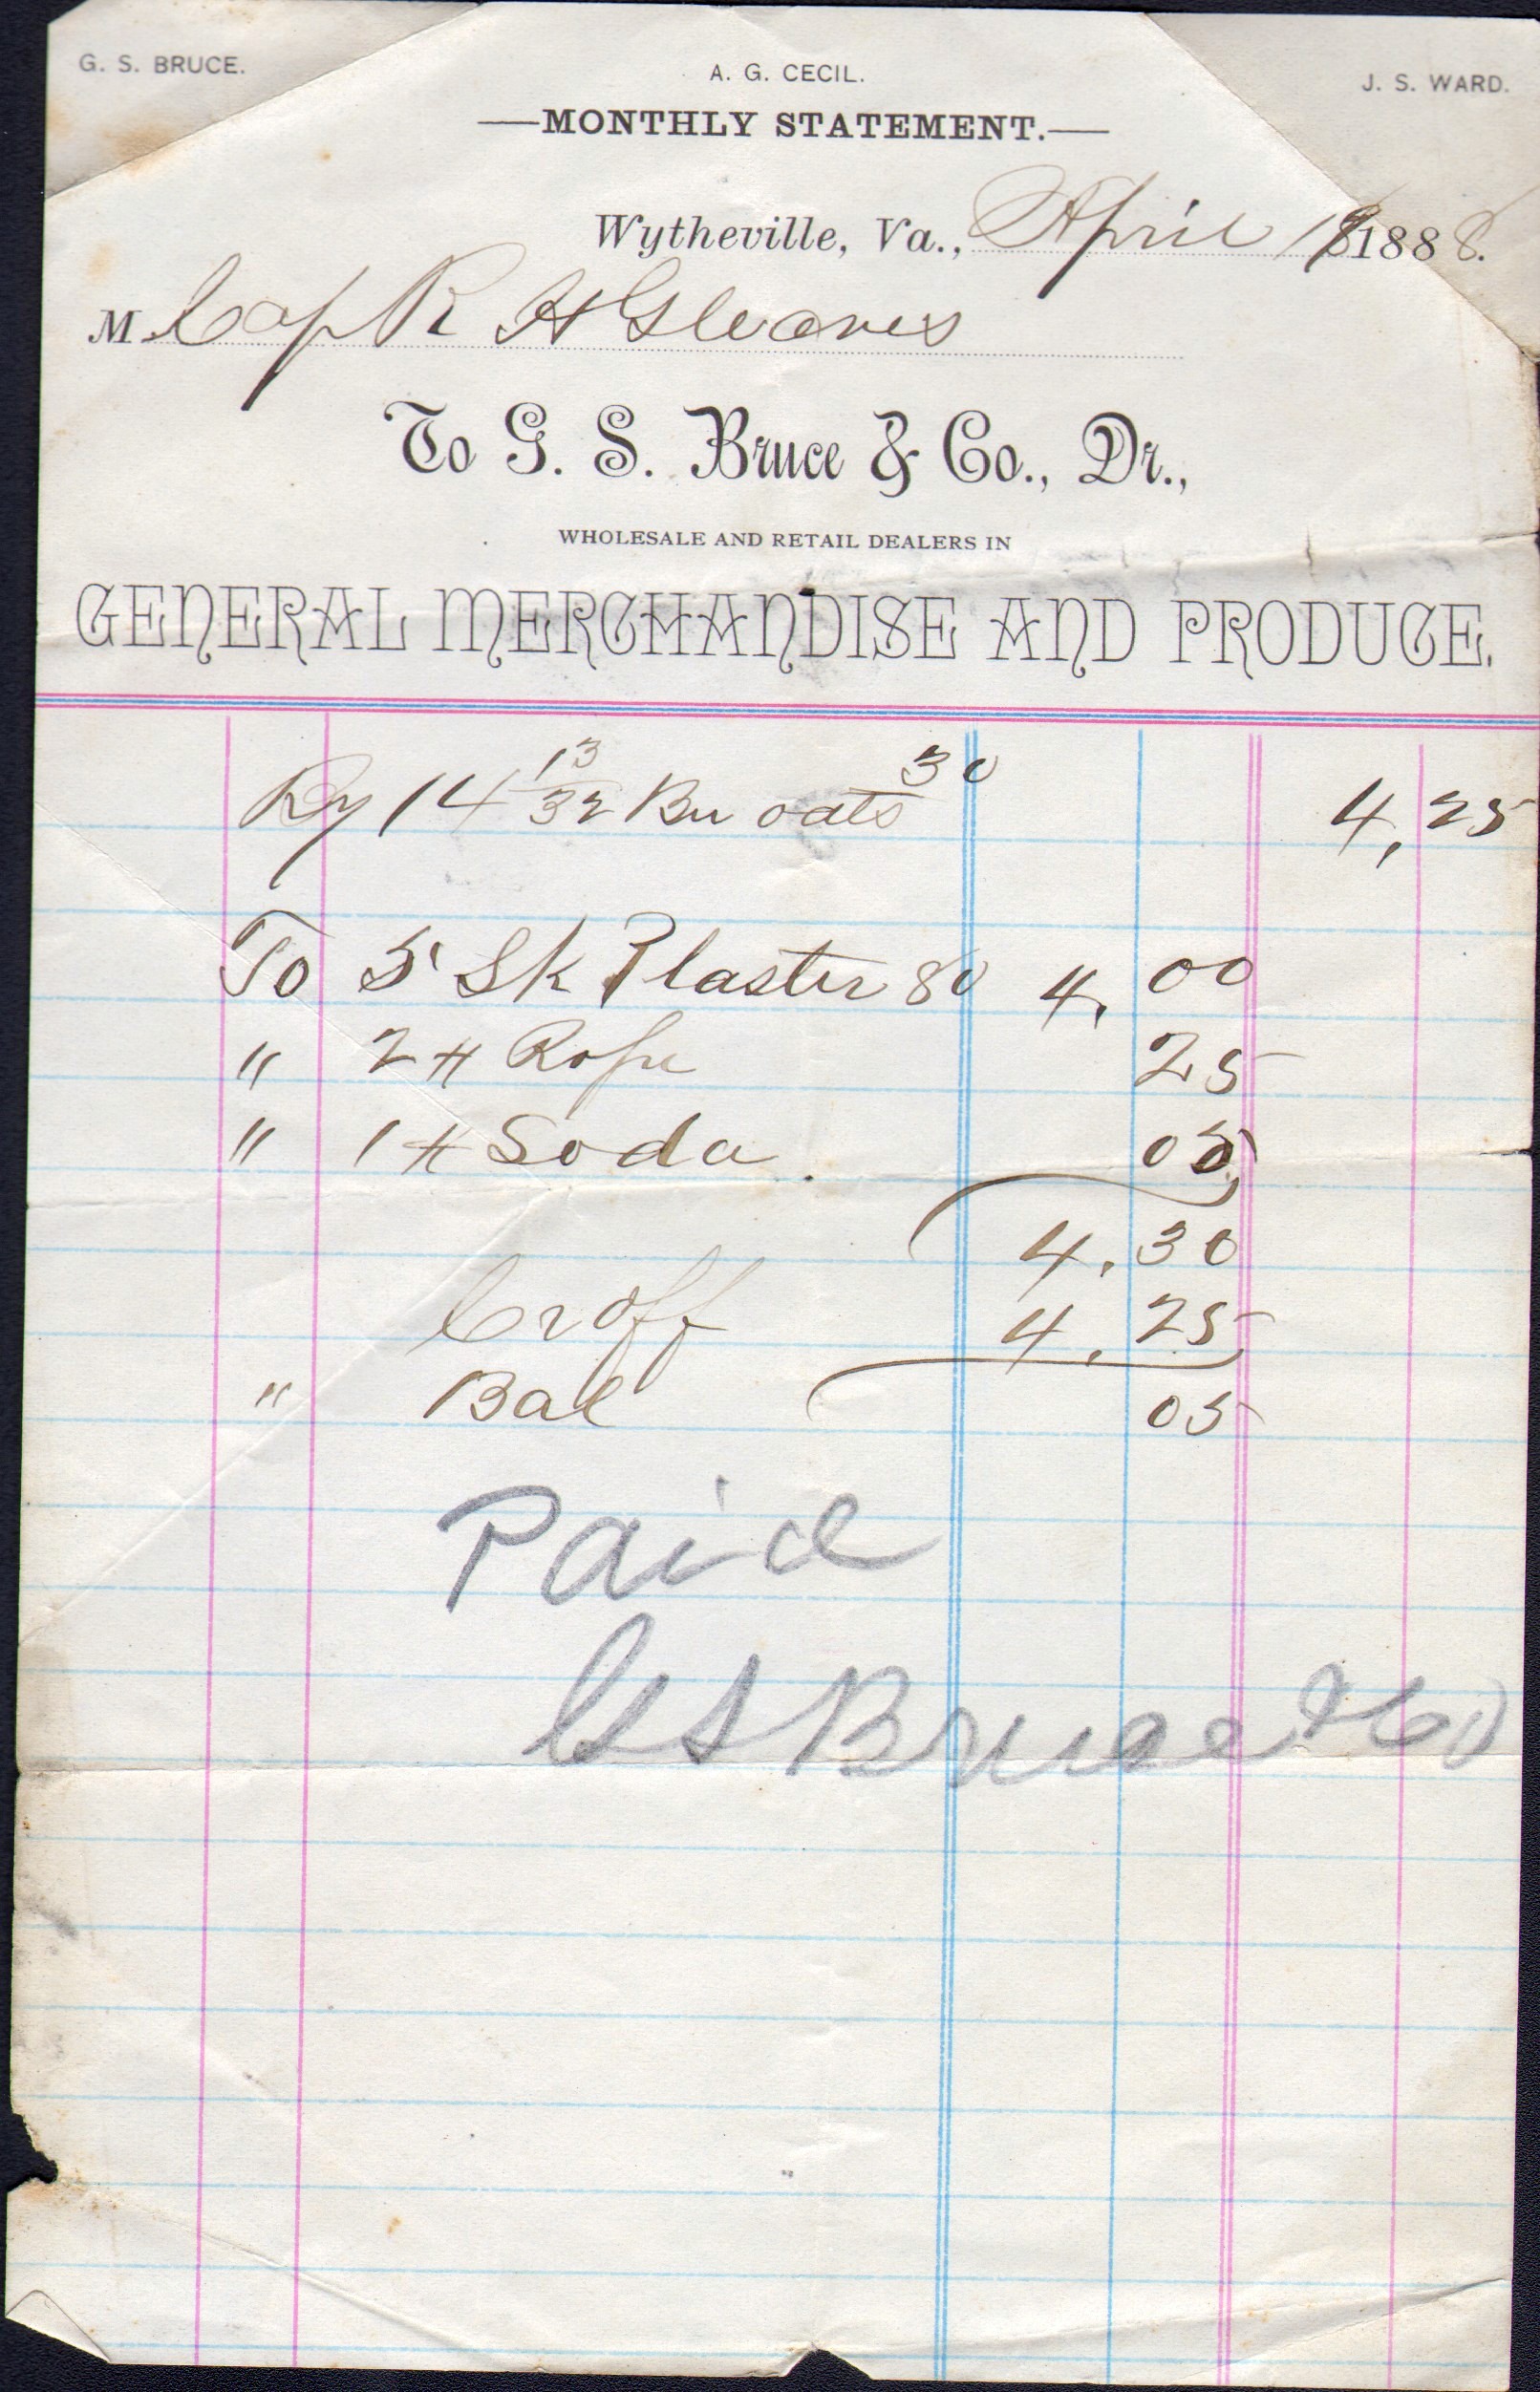 G. S. BRUCE. A. G. CECIL. J. S. WARD.
—MONTHLY STATEMENT.—
Wytheville, Va., April 1888.
M Cap R H Gleaves
To G. S. Bruce & Co., Dr.,
WHOLESALE AND RETAIL DEALERS IN
GENERAL MERCHANDISE AND PRODUCE.
By 14 13/32 Bu oats 30 4,25
To 5 Sk Plaster 80 4.00
" 2 # Rope 25
" 1 # Soda 05
4.30
Cr off 4.25
" Bal 05
Paid
GS Bruce & Co